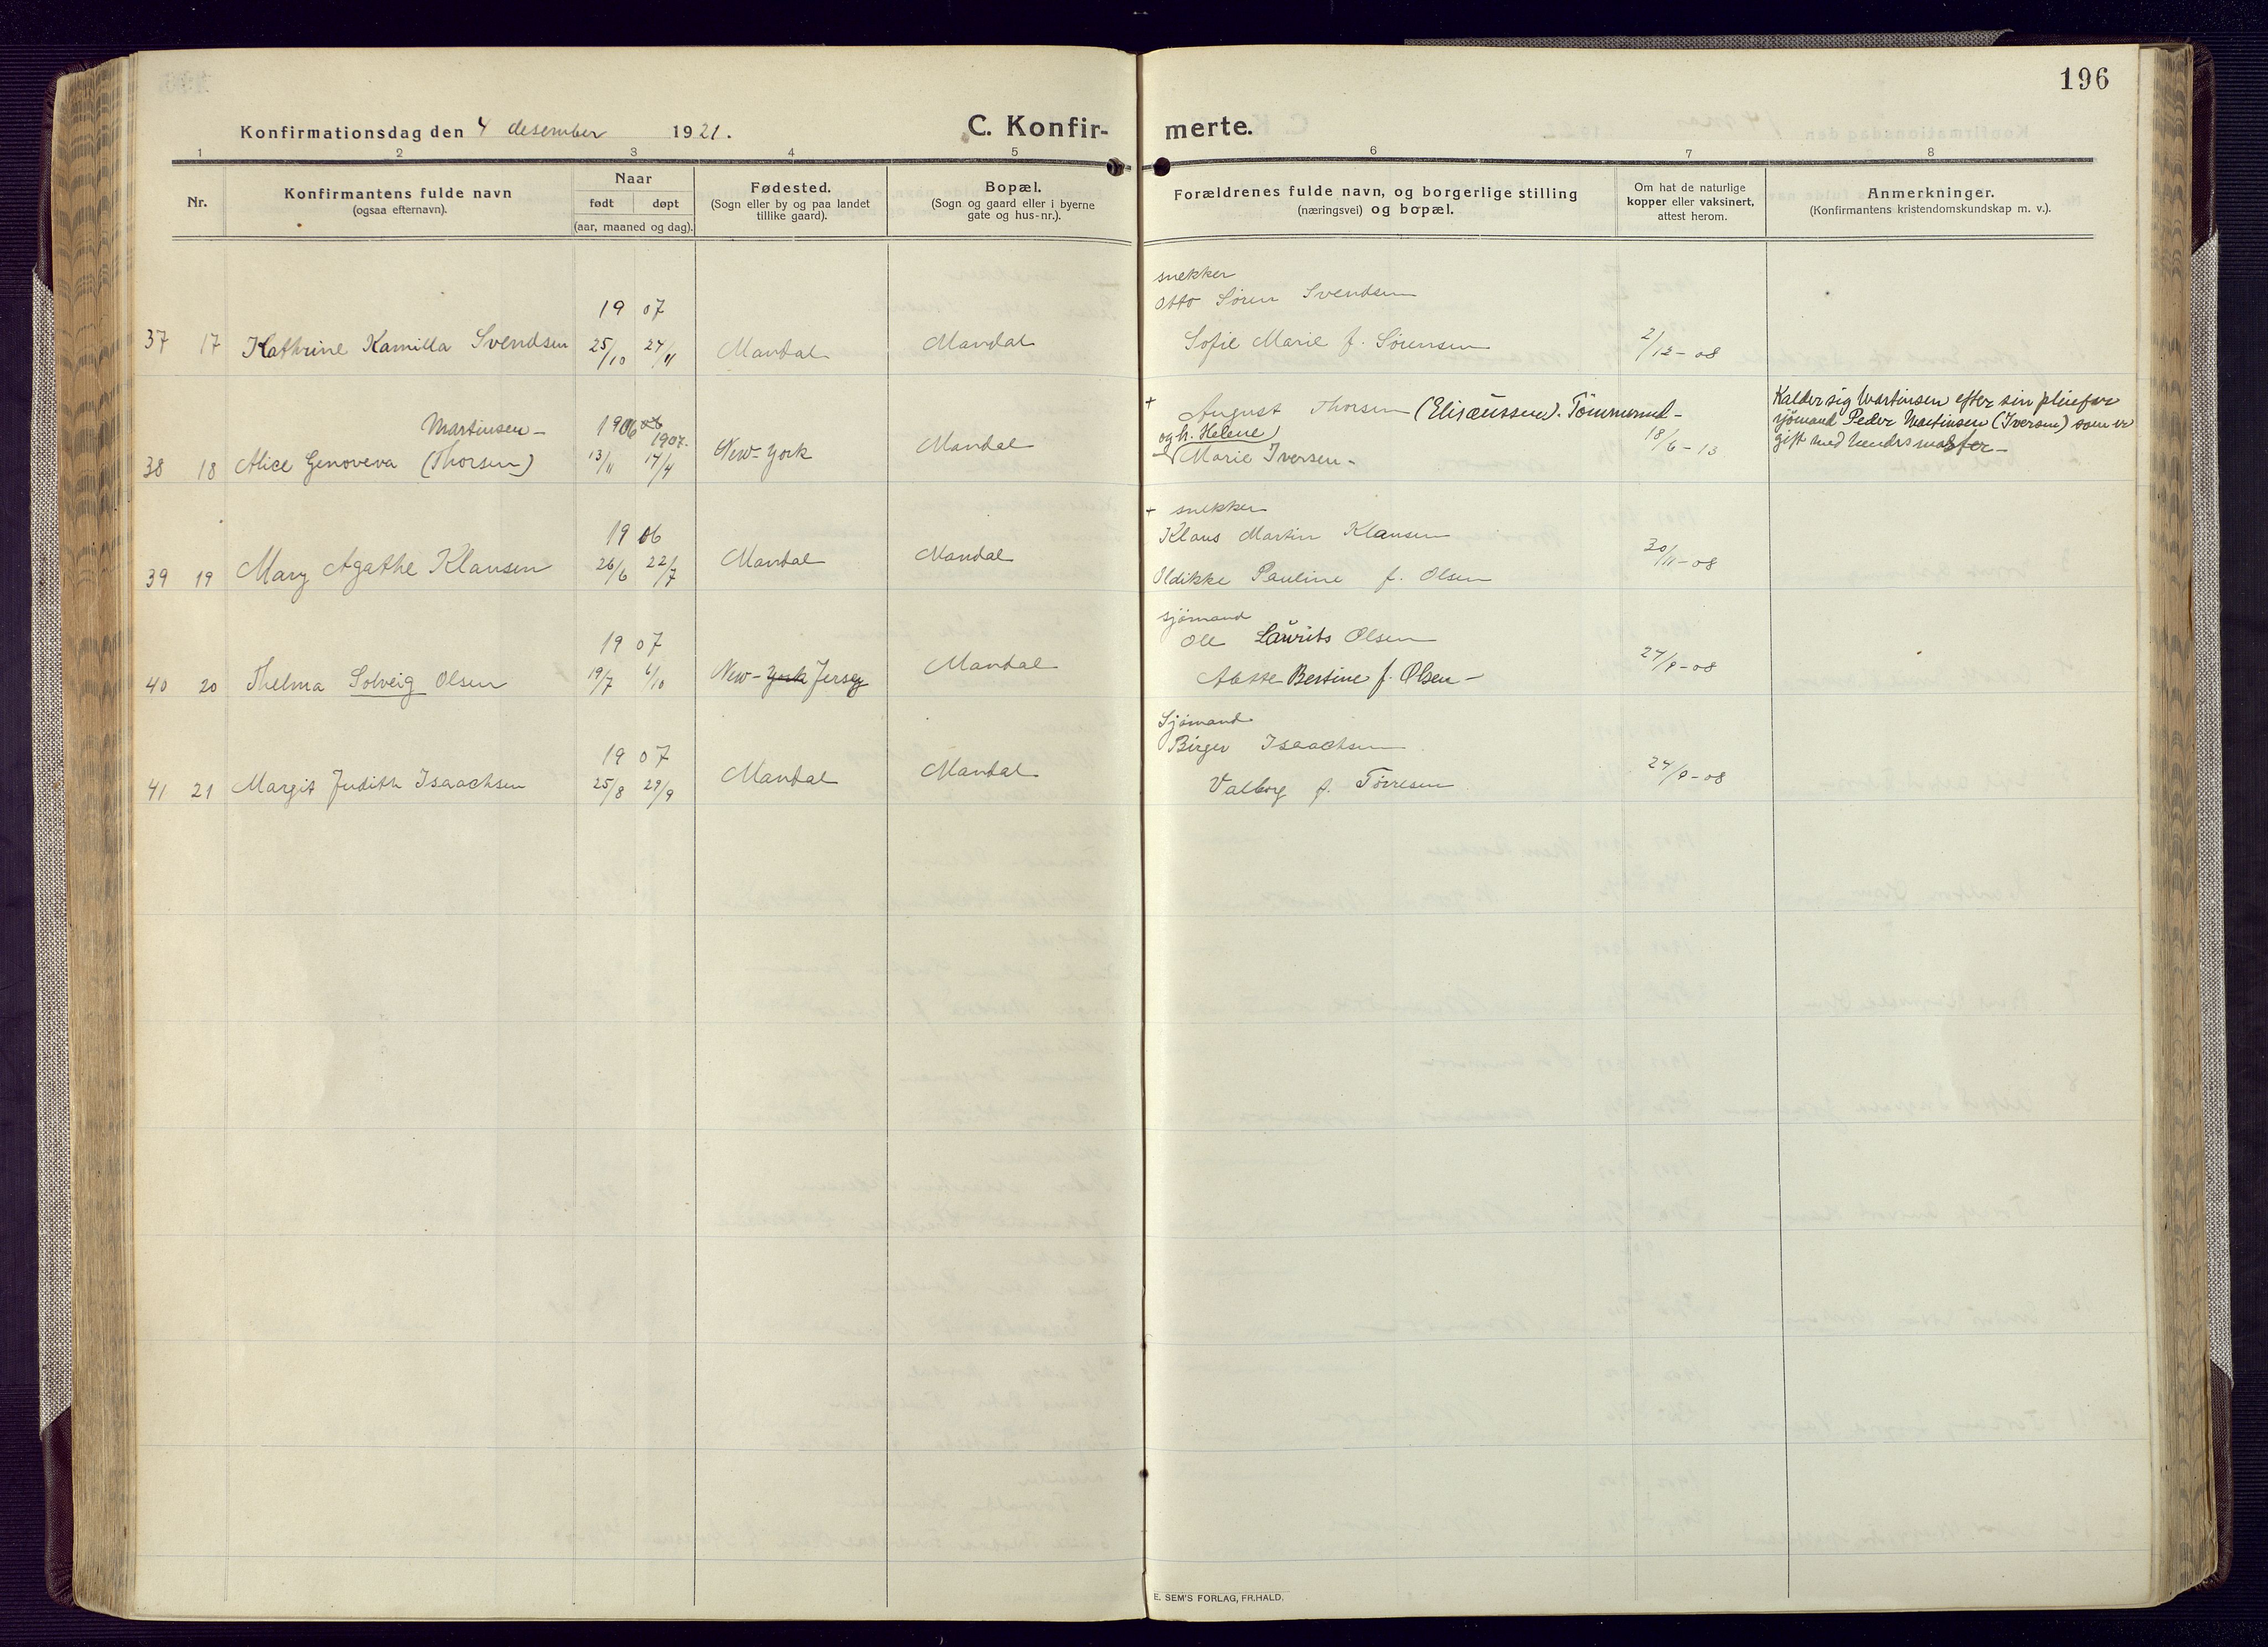 196
Konfirmationsdag den 4 desember 1921.
C. Konfir- merte.
1 2 3 4 5 6 7 8
Nr.
Konfirmantens fulde navn
(ogsaa efternavn).
Naar
født døpt
(aar, maaned og dag).
Fødested.
(Sogn eller by og paa landet
tillike gaard).
Bopæl.
(Sogn og gaard eller i byerne
gate og hus-nr.).
Forældrenes fulde navn, og borgerlige stilling
(næringsvei) og bopæl.
Om hat de naturlige
kopper eller vaksinert,
attest herom.
Anmerkninger.
(Konfirmantens kristendomskundskap m. v.).
snekker
Otto Sören Svendsen
19 07
37 17 Kathrine Kamilla Svendsen 25/10 24/11 Mandal Mandal Sofie Marie f. Sörensen 2/12-08
Martinsen- 1906 06 1907.
+ August Thorsen (Elisæussen). Tömmermd-
38 18 Alice Genoveva (Thorsen) 13/11 14/4 New-York Mandal
og h. Helene
Marie Iversen-
18/6-13
Kalder sig Martinsen efter sin pleiefar
sjömand Peder Martinsen (Iversen) som er
gift med hendes moster-
+ snekker
19 06 Klaus Martin Klausen
39 19 Mary Agathe Klausen 26/6 22/7 Mandal Mandal Oldikke Pauline f. Olsen 30/11-08
sjömand
19 07 Ole Laurits Olsen
40 20 Thelma Solveig Olsen 19/7 6/10 New-York Jersey Mandal Bertine f. Olsen- 27/8-08
Sjömand
19 07 Birger Isaachsen
41 21 Margit Judith Isaachsen 25/8 29/9 Mandal Mandal Valborg f. Törresen 24/8-08
E. SEM'S FORLAG, FR.HALD.